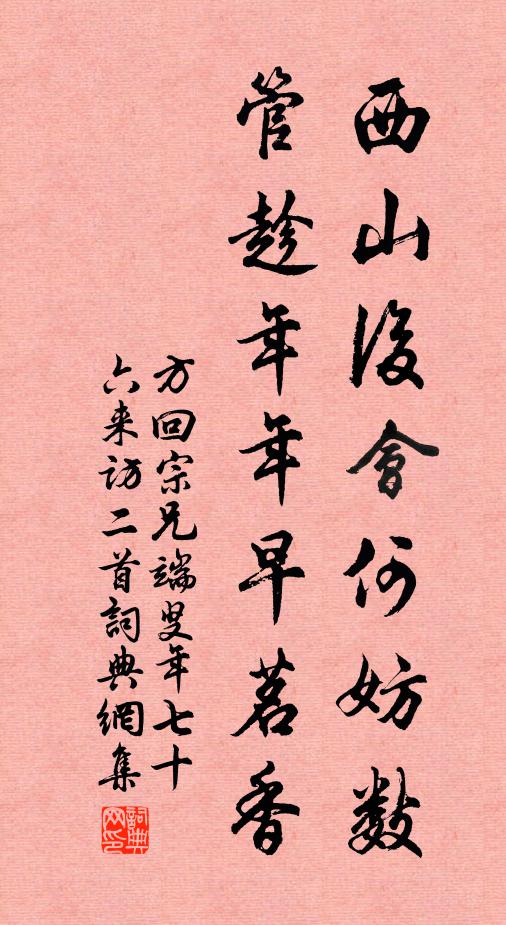 西山後會何妨數
管趁年年早茗香
方回宗兄端叟年七十
六来訪二首詞典網集
詞典
网印